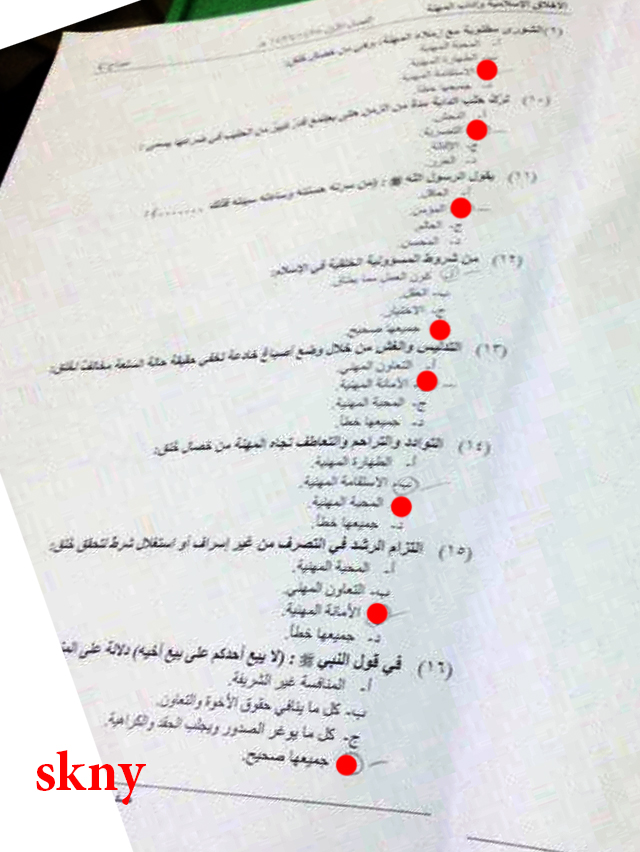 الاخلاق الإسلامية وآداب المهنة
(٩) الشورى مطلوبة مع زملاء المهنة، وهي من خصال خلق:
أ. المحبة المهنية.
ب. الطهارة المهنية.
الاستقامة المهنية.
د. جميعها خطأ.
(١٠) ترك حلب الدابة مدة من الزمن حتى يجتمع قدر كبير من الحليب في ضرعها يسمى:
أ. النجش.
التصرية.
ج. الإقالة.
د. الغرر.
(١١) يقول الرسول الله ﷺ: (من سرته حسنته وساءته سيئته فذلك ........):
أ. العاقل.
المؤمن.
ج. العالم.
د. المحسن.
(١٢) من شروط المسؤولية الخلقية في الإسلام:
أ. كون العمل مما يطاق.
ب- العقل.
ج. الاختيار.
جميعها صحيح.
(١٣) التدليس والغش من خلال وضع أصباغ خادعة لتخفي حقيقة حالة السلعة مخالف لخلق:
أ. التعاون المهني.
الأمانة المهنية.
ج. المحبة المهنية.
د. جميعها خطأ.
(١٤) التوادد والتراحم والتعاطف تجاه المهنة من خصال خلق:
أ. الطهارة المهنية.
ب. الاستقامة المهنية.
المحبة المهنية.
د. جميعها خطأ.
(١٥) التزام الرشد في التصرف من غير إسراف أو استغلال شرط لتحقق خلق:
أ. المحبة المهنية.
ب- التعاون المهني.
الأمانة المهنية.
د. جميعها خطأ.
(١٦) في قول النبي ﷺ: (لا يبع أحدكم على بيع أخيه) دلالة على
أ. المنافسة غير الشريفة.
ب- كل ما ينافي حقوق الأخوة والتعاون.
ج- كل ما يوغر الصدور ويجلب الحقد والكراهية.
جميعها صحيح.
skny